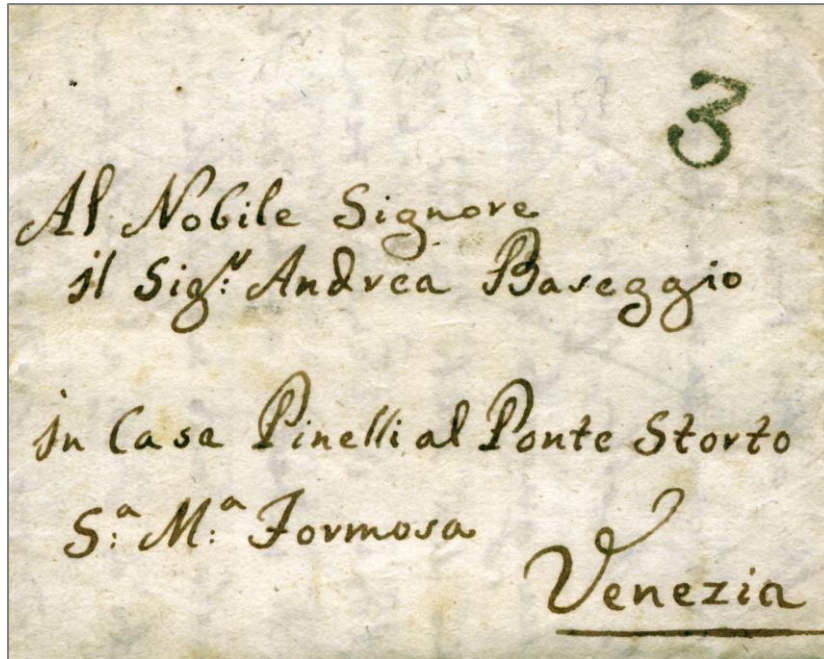 3
Al Nobile Signore
il Sig.r Andrea Baseggio
in Casa Pinelli al Ponte Storto
S:a M:a Formosa
Venezia